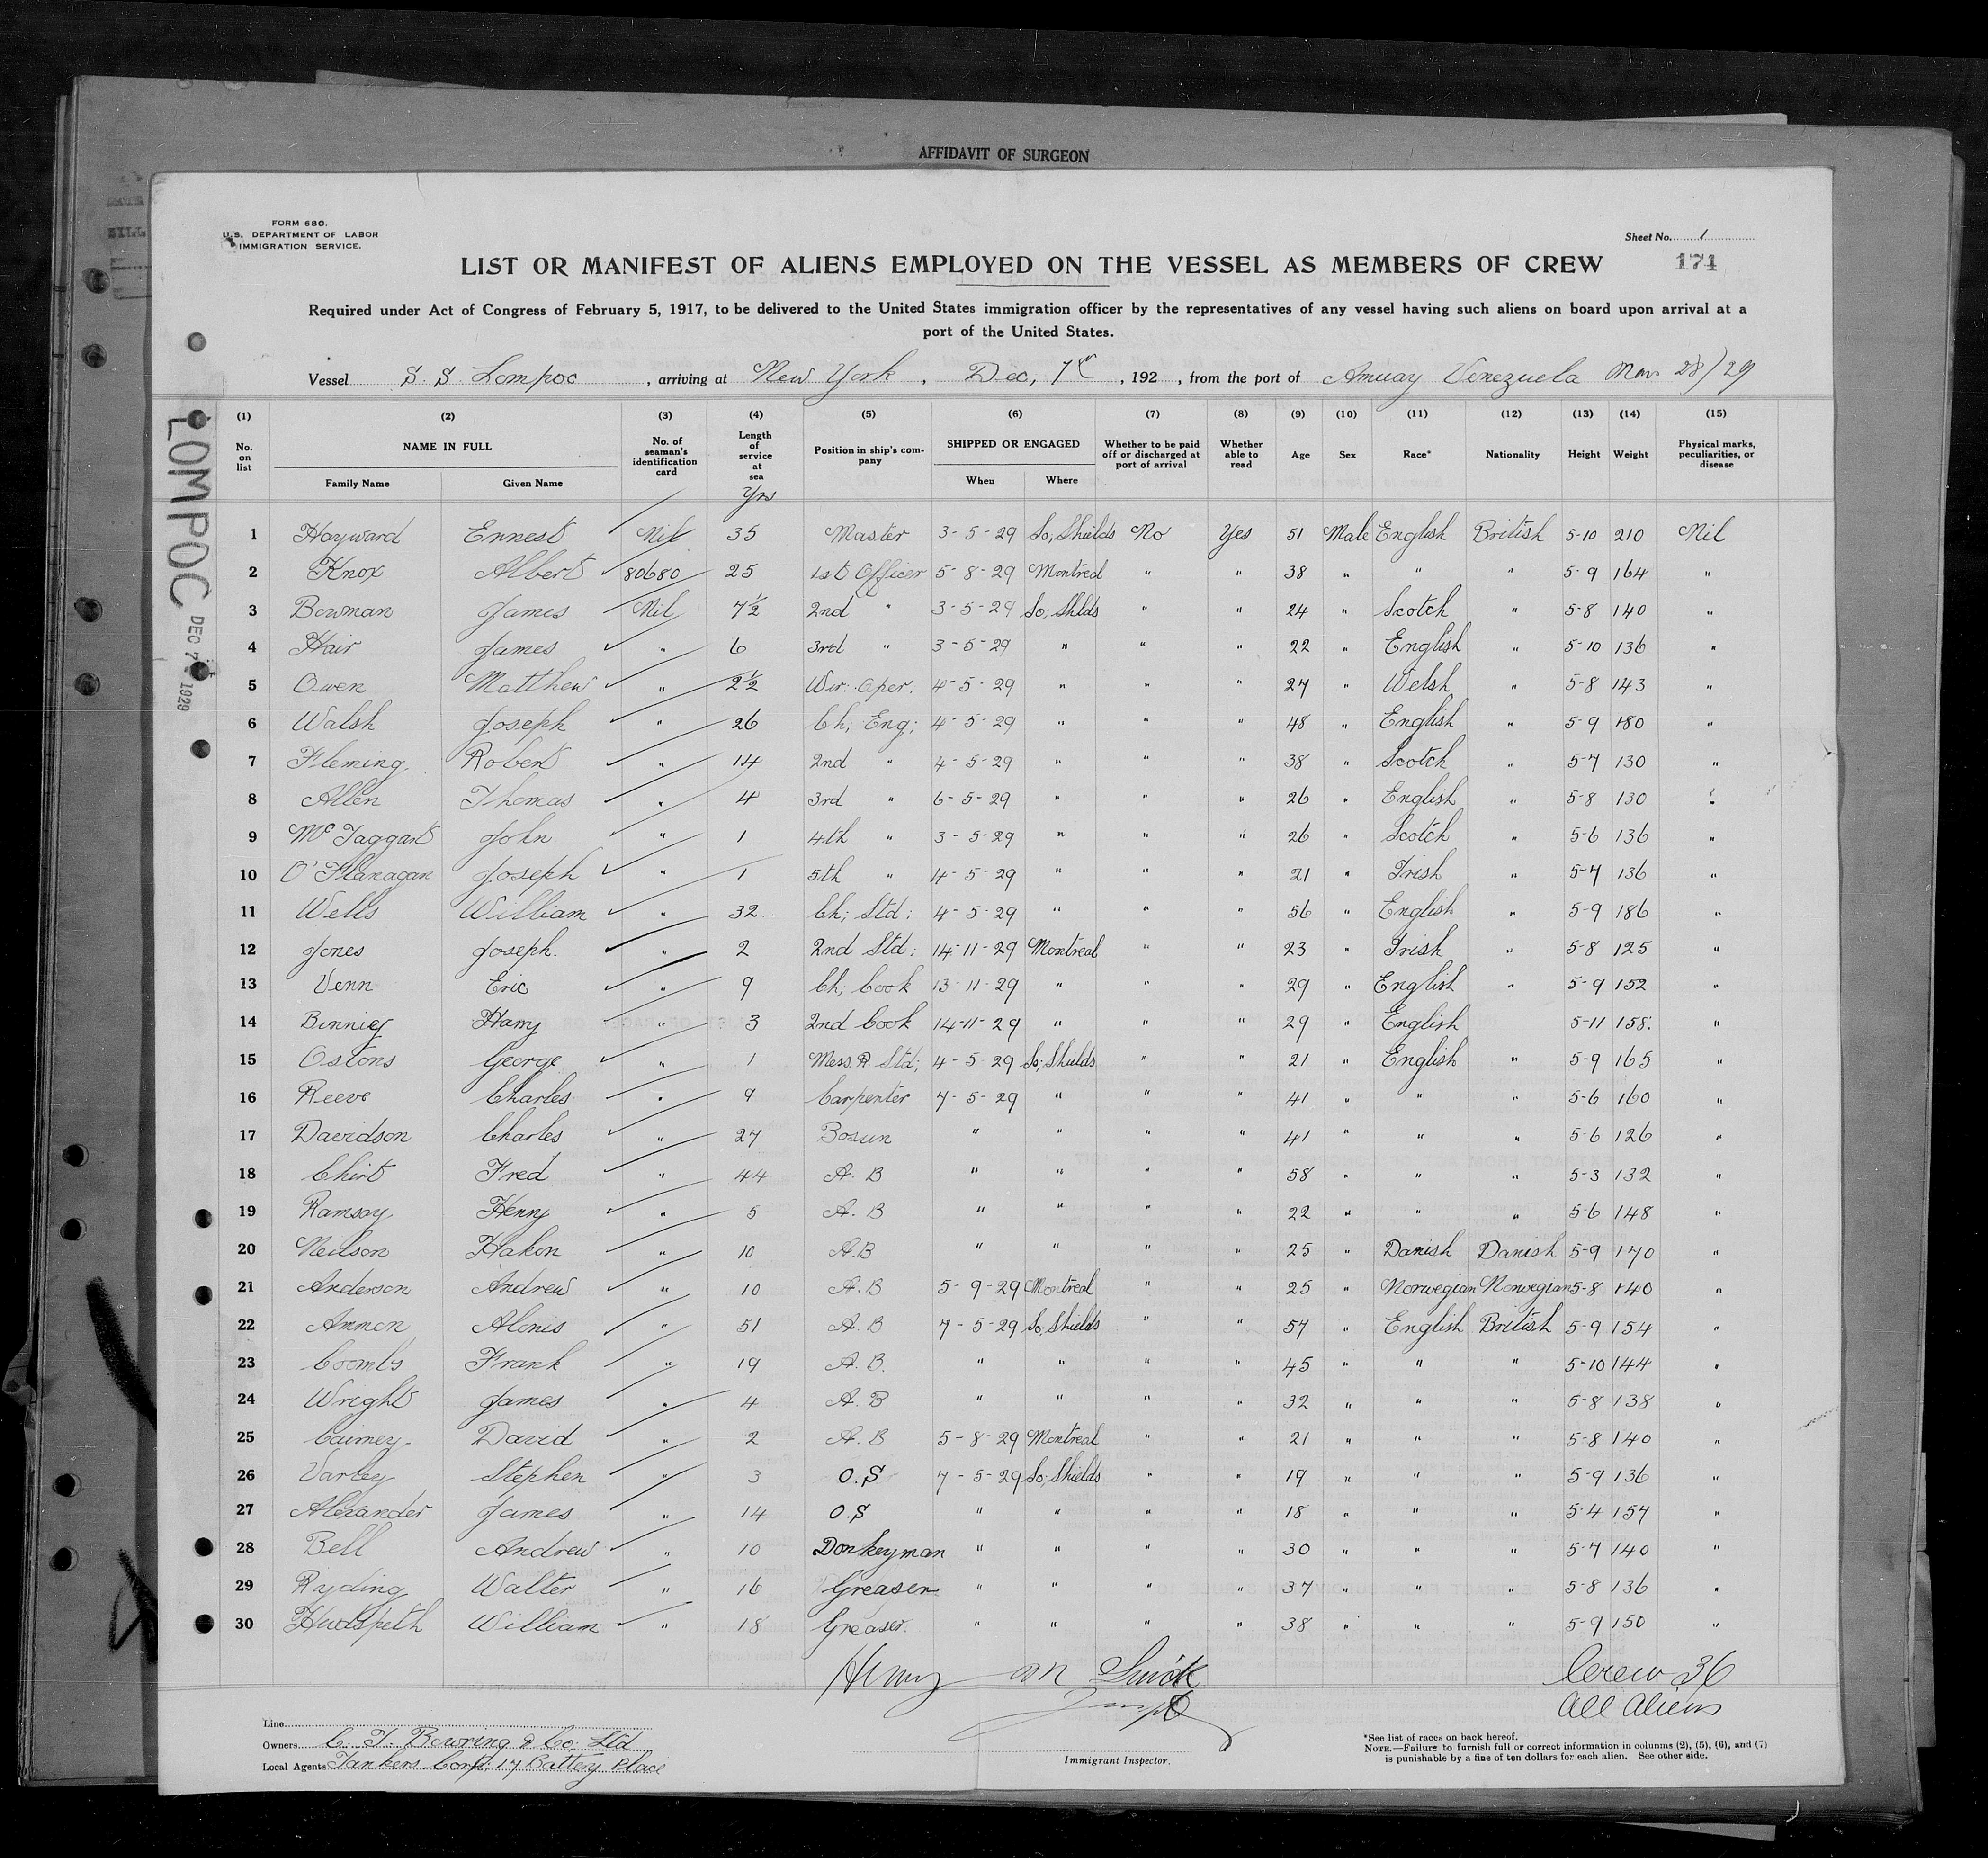 AFFIDAVIT OF SURGEON
FORM 680.
U.S. DEPARTMENT OF LABOR
IMMIGRATION SERVICE.
Sheet No. 1
LIST OR MANIFEST OF ALIENS EMPLOYED ON THE VESSEL AS MEMBERS OF CREW
174
Required under Act of Congress of February 5, 1917, to be delivered to the United States immigration officer by the representatives of any vessel having such aliens on board upon arrival at a
port of the United States.
Vessel S. S. Lompoc, arriving at New York, Dec, 7th, 192 , from the port of Amuay Venezuela Nov 28/29
LOMPOC DEC 7 1929
(1) (2) (3) (4) (5) (6) (7) (8) (9) (10) (11) (12) (13) (14) (15)
No. on list NAME IN FULL Family Name Given Name No. of seaman's identification card Length of service at sea Yrs Position in ship's company SHIPPED OR ENGAGED When Where Whether to be paid off or discharged at port of arrival Whether able to read Age Sex Race* Nationality Height Weight Physical marks, peculiarities, or disease
1 Hayward Ernest Nil 35 Master 3-5-29 So, Shields No Yes 51 Male English British 5-10 210 Nil
2 Knox Albert 80680 25 1st Officer 5-8-29 Montreal " " 38 " " " 5-9 164 "
3 Bowman James Nil 7½ 2nd " 3-5-29 So; Shlds " " 24 " Scotch " 5-8 140 "
4 Hair James " 6 3rd " 3-5-29 " " " 22 " English " 5-10 136 "
5 Owen Matthew " 2½ Wir. Oper. 4-5-29 " " " 27 " Welsh " 5-8 143 "
6 Walsh Joseph " 26 Ch; Eng; 4-5-29 " " " 48 " English " 5-9 180 "
7 Fleming Robert " 14 2nd " 4-5-29 " " " 38 " Scotch " 5-7 130 "
8 Allen Thomas " 4 3rd " 6-5-29 " " " 26 " English " 5-8 130 "
9 McTaggart John " 1 4th " 3-5-29 " " " 26 " Scotch " 5-6 136 "
10 O'Flanagan Joseph " 1 5th " 4-5-29 " " " 21 " Irish " 5-7 136 "
11 Wells William " 32 Ch; Std; 4-5-29 " " " 56 " English " 5-9 186 "
12 Jones Joseph. " 2 2nd Std; 14-11-29 Montreal " " 23 " Irish " 5-8 125 "
13 Venn Eric " 9 Ch; Cook 13-11-29 " " " 29 " English " 5-9 152 "
14 Binnies Harry " 3 2nd Cook 14-11-29 " " " 29 " English 5-11 158. "
15 Ostons George " 1 Mess. R. Std; 4-5-29 So; Shields " " 21 " English " 5-9 165 "
16 Reeve Charles " 9 Carpenter 7-5-29 " " " 41 " " " 5-6 160 "
17 Davidson Charles " 27 Bosun " " " " 41 " " " 5-6 126 "
18 Chirt Fred " 44 A. B " " " " 58 " " " 5-3 132 "
19 Ramsay Henry " 5 A. B " " " " 22 " " " 5-6 148 "
20 Neilson Hakon " 10 A.B " " " " 25 " Danish Danish 5-9 170 "
21 Anderson Andrew " 10 A.B 5-9-29 Montreal " " 25 " Norwegian Norwegian 5-8 140 "
22 Ammon Alonis " 51 A. B 7-5-29 So; Shields " " 57 " English British 5-9 154 "
23 Coombs Frank " 19 A. B. " " " " 45 " " " 5-10 144 "
24 Wright James " 4 A. B " " " " 32 " " " 5-8 138 "
25 Cairney David " 2 A. B 5-8-29 Montreal " " 21 " " " 5-8 140 "
26 Varley Stephen " 3 O.S 7-5-29 So; Shields " " 19 " " " 5-9 136 "
27 Alexander James " 14 O.S " " " " 18 " " " 5-4 157 "
28 Bell Andrew " 10 Donkeyman " " " " 30 " " " 5-7 140 "
29 Ryding Walter " 16 Greaser " " " " 37 " " " 5-8 136 "
30 Hudspeth William " 18 Greaser. " " " " 38 " " " 5-9 150 "
Henry M
Crew 36
All Aliens
Line
Owners C. T. Bowring & Co; Ltd
Local Agents Tankers Corpt. 17 Battery Place
Immigrant Inspector.
*See list of races on back hereof.
NOTE.—Failure to furnish full or correct information in columns (2), (5), (6), and (7)
is punishable by a fine of ten dollars for each alien. See other side.